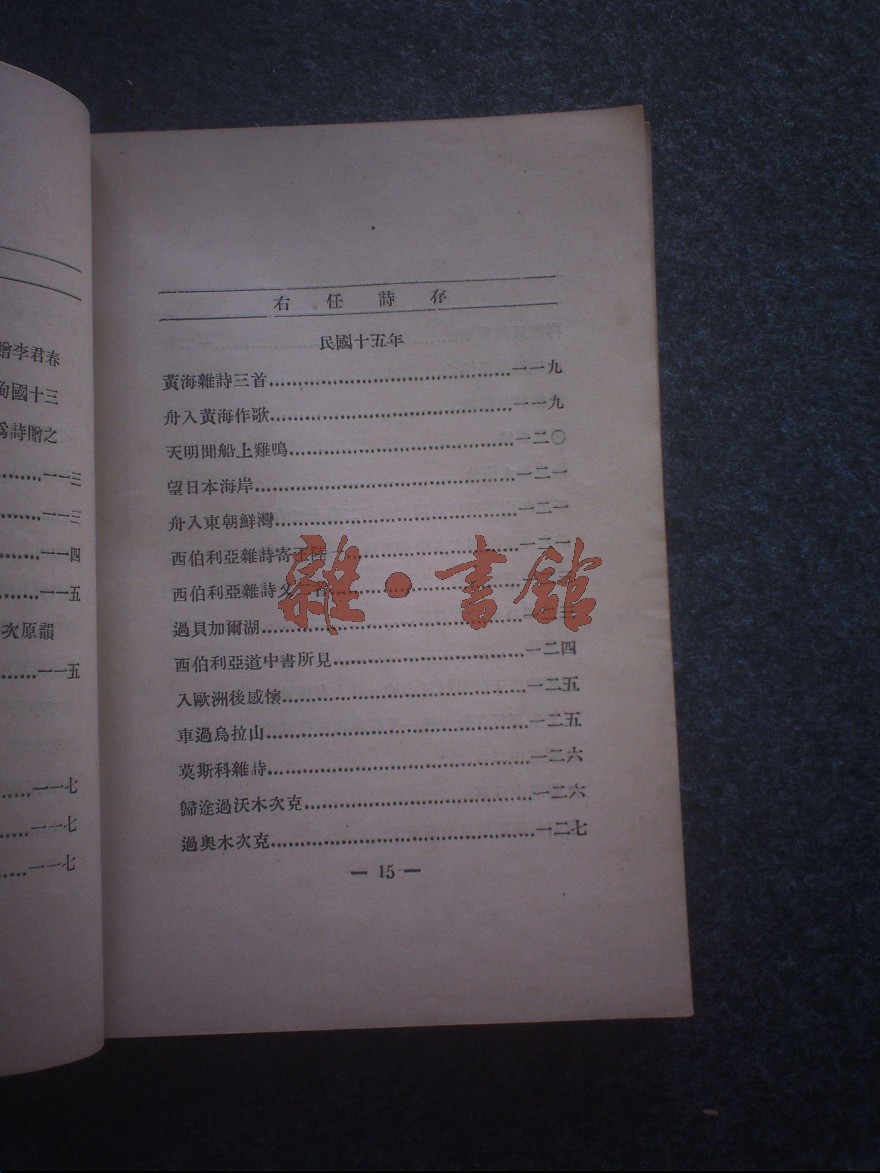 贈李君春
十三
為詩贈之
一一三
一一三
一一四
一一五
次原韻
一一五
一一七
一一七
一一七
右任詩存
民國十五年
黃海雜詩三首……一一九
舟入黃海作歌……一一九
天明聞船上雞鳴……一二〇
望日本海岸……一二一
舟入東朝鮮灣……一二一
西伯利亞雜詩寄王陸一……一二一
西伯利亞雜詩
過貝加爾湖……一二三
西伯利亞道中書所見……一二四
入歐洲後感懷……一二五
車過烏拉山……一二五
莫斯科雜詩……一二六
歸途過沃木次克……一二六
過奧木次克……一二七
— 15 —
雜·書館